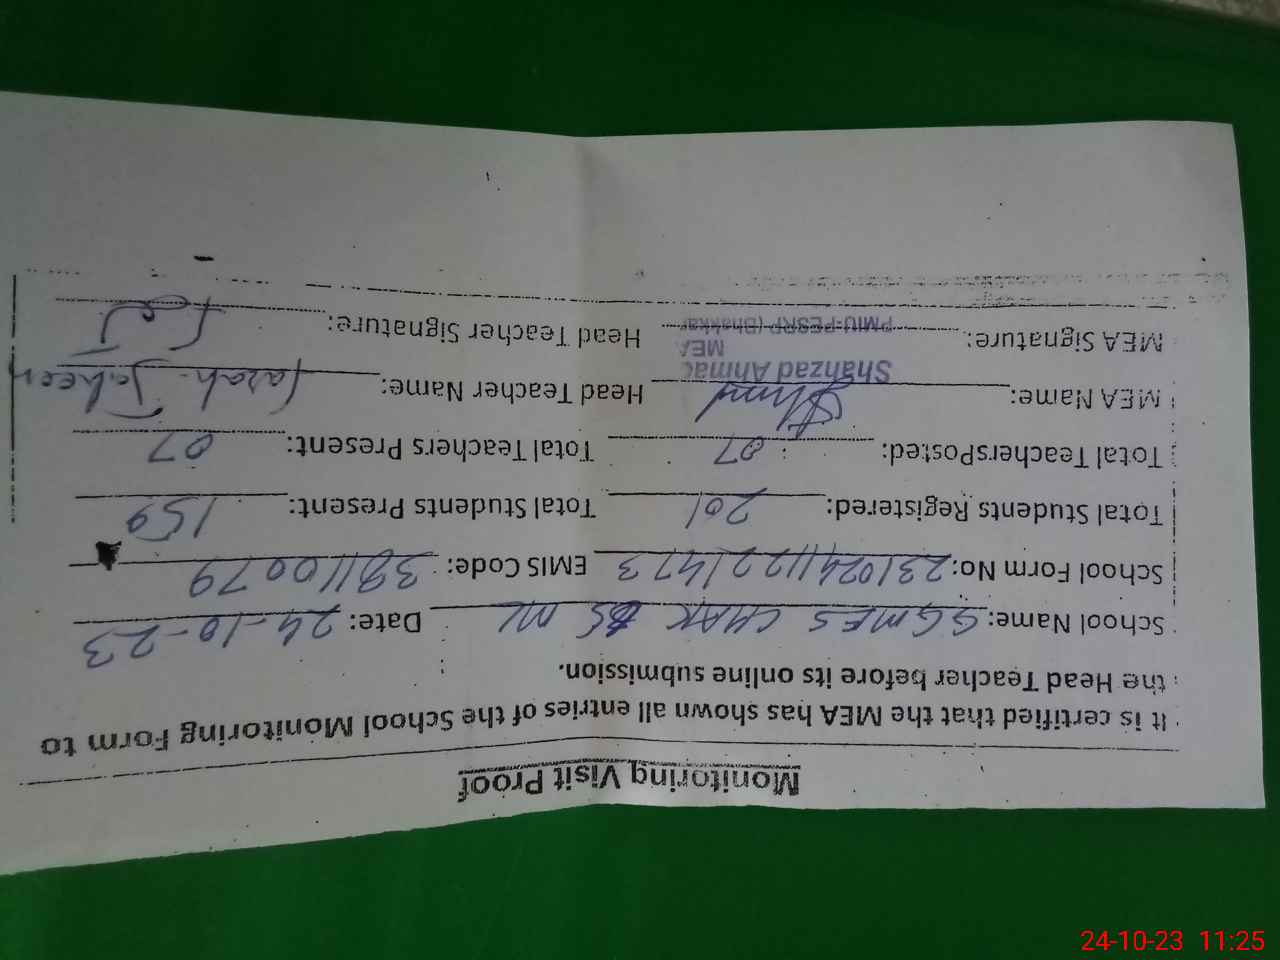 Monitoring Visit Proof
It is certified that the MEA has shown all entries of the School Monitoring Form to
the Head Teacher before its online submission.
School Name: GGMES CHAK ML Date: 24-10-23
School Form No: 23102411221473 EMIS Code: 38110079
Total Students Registered: 201 Total Students Present: 159
Total TeachersPosted: 07 Total Teachers Present: 07
MEA Name: Head Teacher Name: Farah Jabeen
Shahzad Ahmad
MEA
MEA Signature: PMIU-PESRP (Bhakkar Head Teacher Signature:
24-10-23 11:25